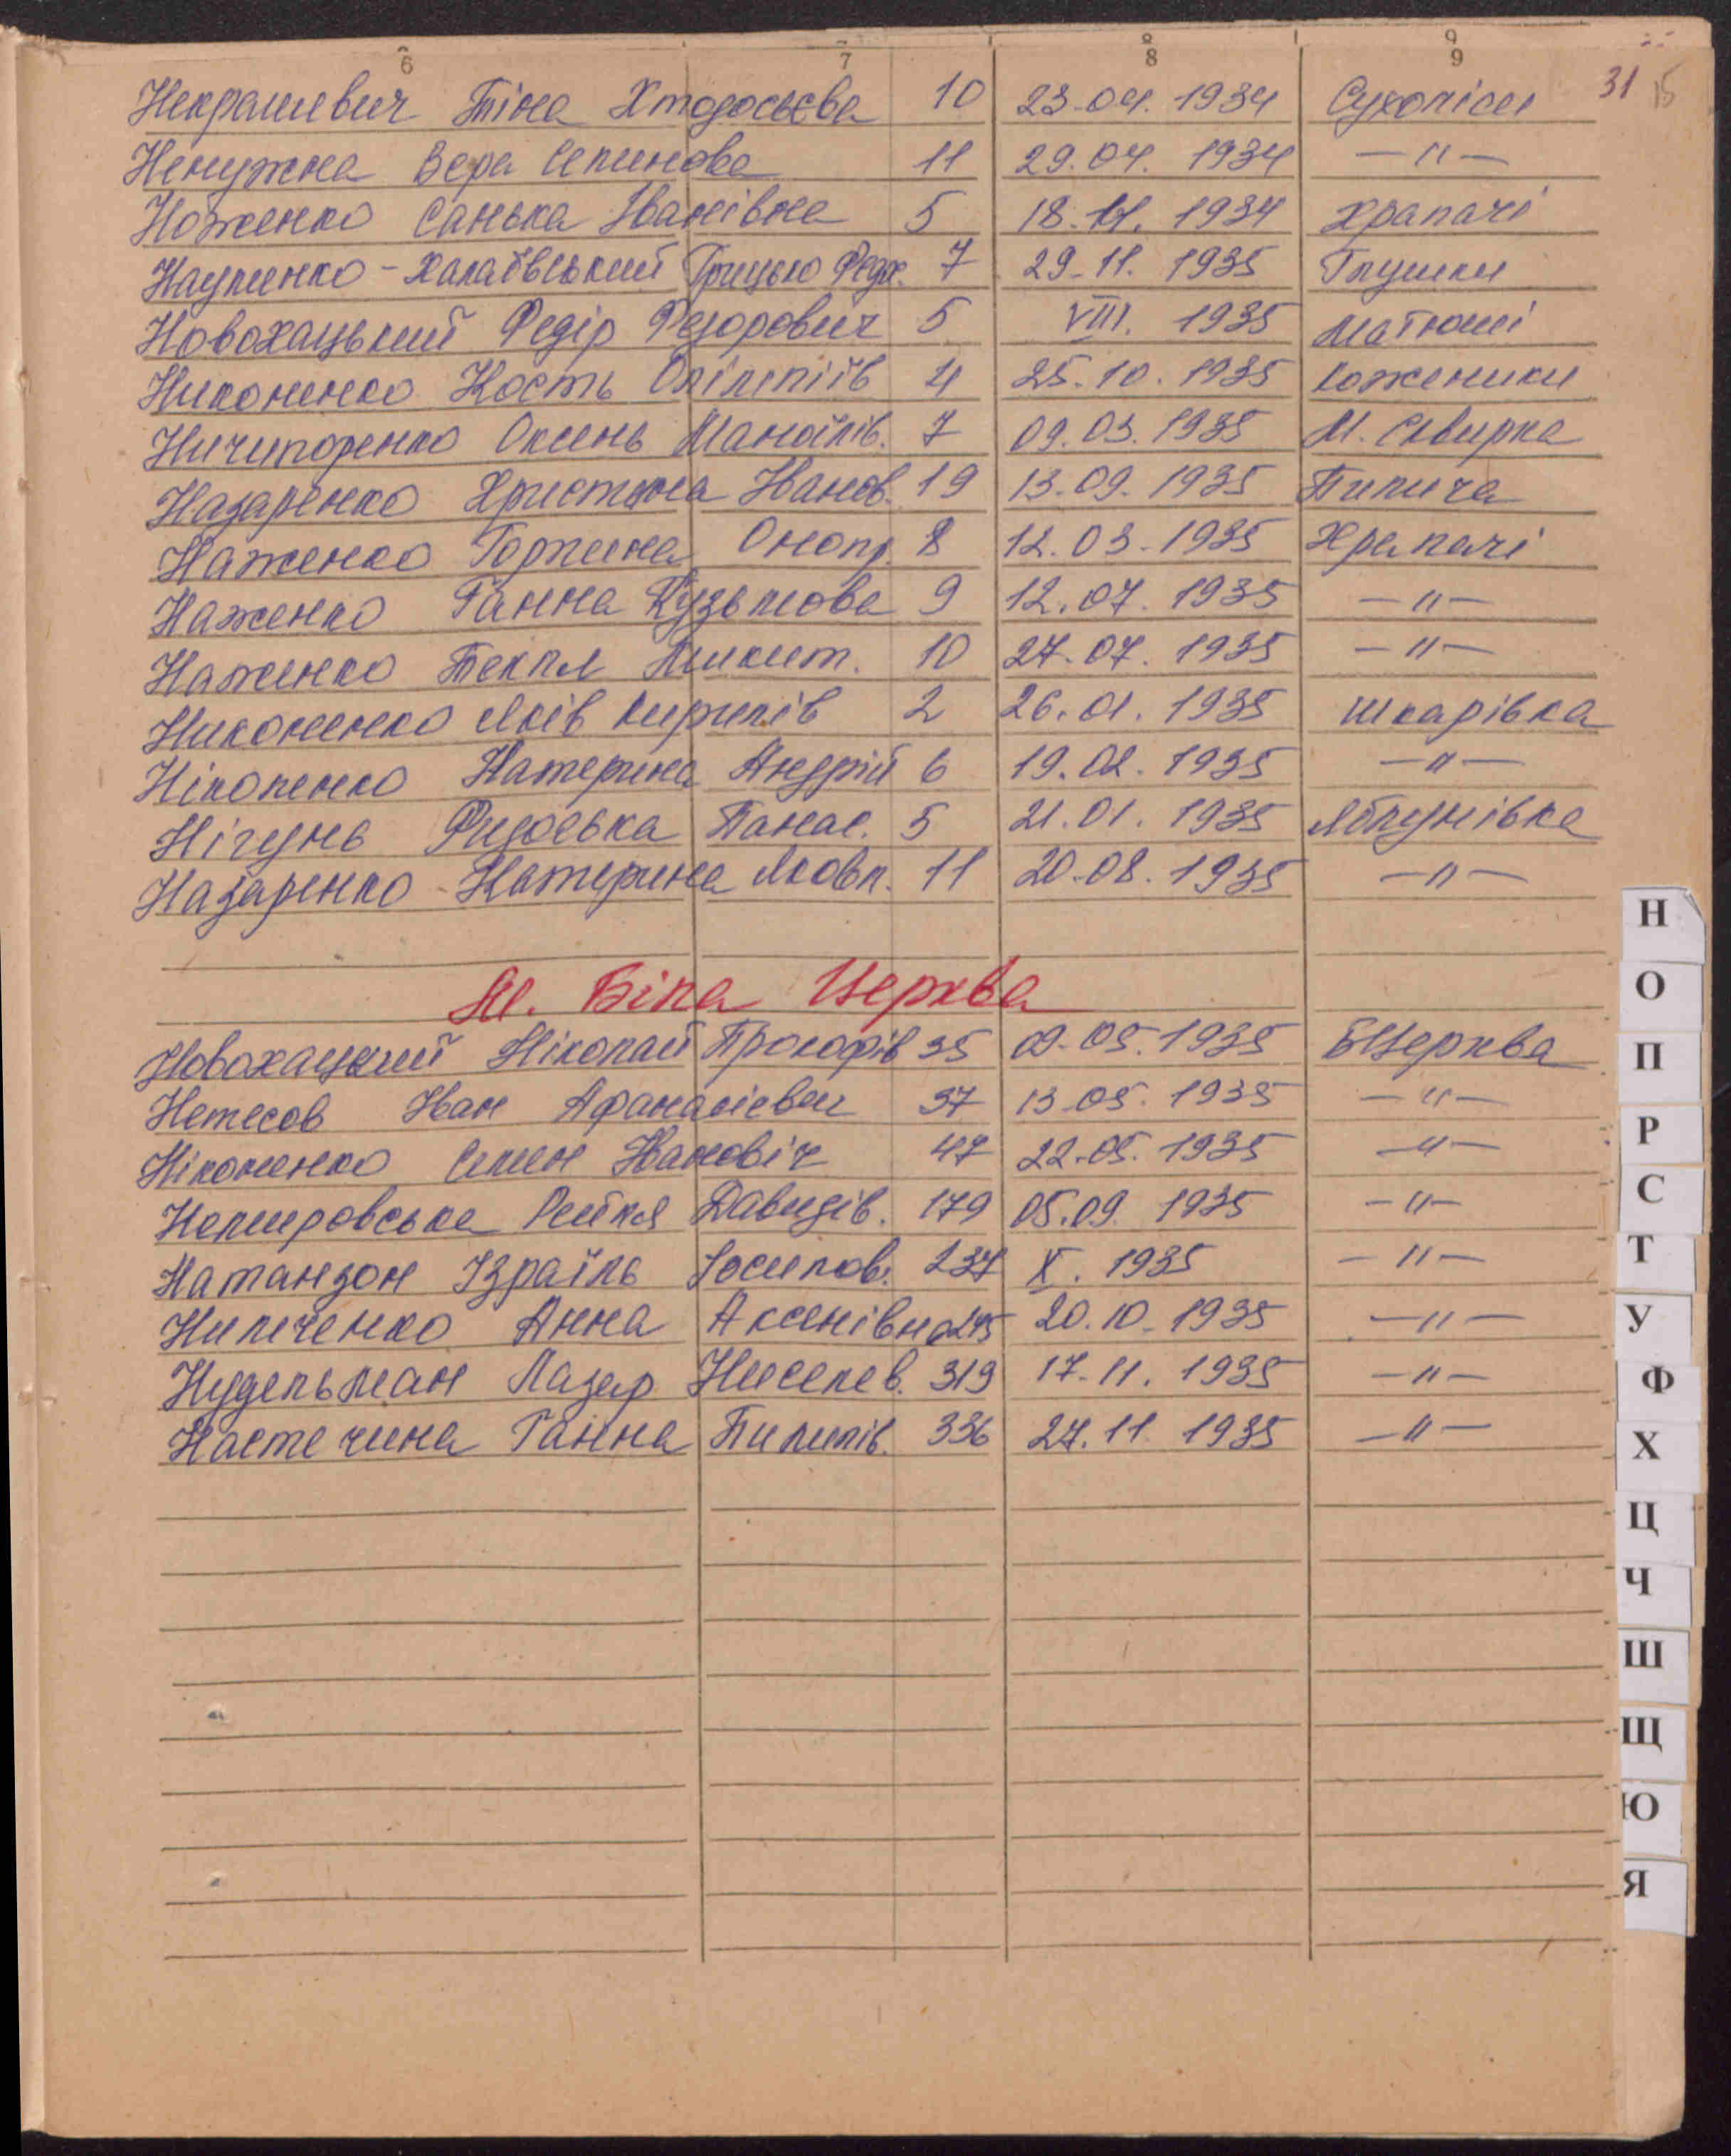 6 7 8 9
8 9
31 15
Некрашевич Тіна Хтодосьєва 10 23.04. 1934 Сухоліси
Ненужна Вера Семинова 11 29.04. 1934 -"-
Ноженко Санька Іванівна 5 18.11. 1934 Храпачі
Науменко-Халаївський Грицько Федх. 7 29.11. 1935 Глушки
Новохацький Федір Федорович 5 VIII. 1935 Матюші
Никоненко Кость Оліпіїв 4 25.10. 1935 Коженики
Ничипоренко Оксень Манойлів. 7 09.03. 1935 М. Сквирка
Назаренко Христина Іванов. 19 13.09. 1935 Пилича
Наженко Горпина Онопр. 8 12.03. 1935 Храпачі
Наженко Ганна Кузьмова 9 12.07. 1935 -"-
Наженко Текля Микит. 10 27.07. 1935 -"-
Никоненко Яків Кирилів 2 26.01. 1935 Шкарівка
Ніколенко Катерина Андрій 6 19.02. 1935 -"-
Нігунь Фидоська Панас. 5 21.01. 1935 Яблунівка
Назаренко Катерина Яковл. 11 20.08. 1935 -"-
М. Біла Церква
Новохацкий Ніколай Прокофів 35 09.05. 1935 БЦерква
Нетесов Іван Афанасієвич 37 13.05. 1935 -"-
Ніконенко Семен Івановіч 47 22.05. 1935 -"-
Немировська Рейля Давидів. 179 05.09. 1935 -"-
Натанзон Ізраїль Йосипов. 237 X. 1935 -"-
Нипченко Анна Аксенівна 245 20.10. 1935 -"-
Нудельман Лазер Ниселев. 319 17.11. 1935 -"-
Настечина Ганна Пилипів. 336 27.11. 1935 -"-
Н
О
П
Р
С
Т
У
Ф
Х
Ц
Ч
Ш
Щ
Ю
Я